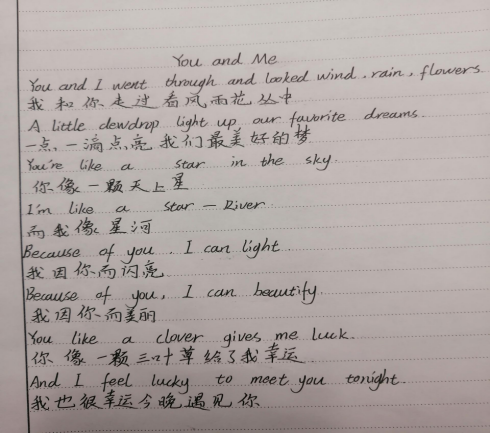 You and Me
You and I went through and looked wind, rain, flowers
我和你走过看风雨花丛中
A little dewdrop light up our favorite dreams.
一点,一滴点亮我们最美好的梦
You're like a star in the sky.
你像一颗天上星
I'm like a star - River
而我像星河
Because of you. I can light
我因你而闪亮
Because of you, I can beautify.
我因你而美丽
You like a clover gives me luck.
你像一颗三叶草给了我幸运
And I feel lucky to meet you tonight.
我也很幸运今晚遇见你